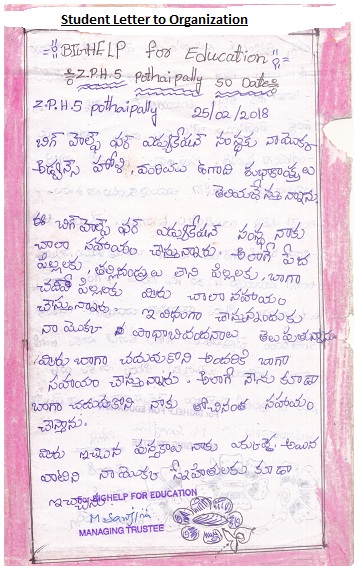 Student Letter to Organization
BIGHELP for Education
Z.P.H.S Pothaipally
Z.P.H.S pothaipally 25/02/2018
బిగ్ హెల్ప్ ఫర్ ఎడ్యుకేషన్ సంస్థకు నా యొక్క
అడ్వాన్స్ హోళి, మరియు ఉగాది శుభాకాంక్షలు
తెలియజేస్తున్నాను.
ఈ బిగ్ హెల్ప్ ఫర్ ఎడ్యుకేషన్ సంస్థ నాకు
చాలా సహాయం చేస్తున్నారు. అలాగే పేద
పిల్లలకు, తల్లిదండ్రులు లేని పిల్లలకు, బాగా
చదివే పిల్లలకు మీరు చాలా సహాయం
చేస్తున్నారు. ఇ విధంగా చేస్తున్నందుకు
నా యొక్క పాదాభివందనాలు తెలుపుతున్నాను
మీరు బాగా చదుదుకొని అందరికి బాగా
సహాయం చేస్తున్నారు. అలాగే నేను కూడా
బాగా చదుదుకొని నాకు తోచినంత సహాయం
చేస్తాను.
మీరు ఇచ్చిన పుస్తకాలు నాకు అయిన
వాటిని నా యొక్క స్నేహితులకు కూడా
ఇచ్చాను.
BIGHELP FOR EDUCATION
MANAGING TRUSTEE